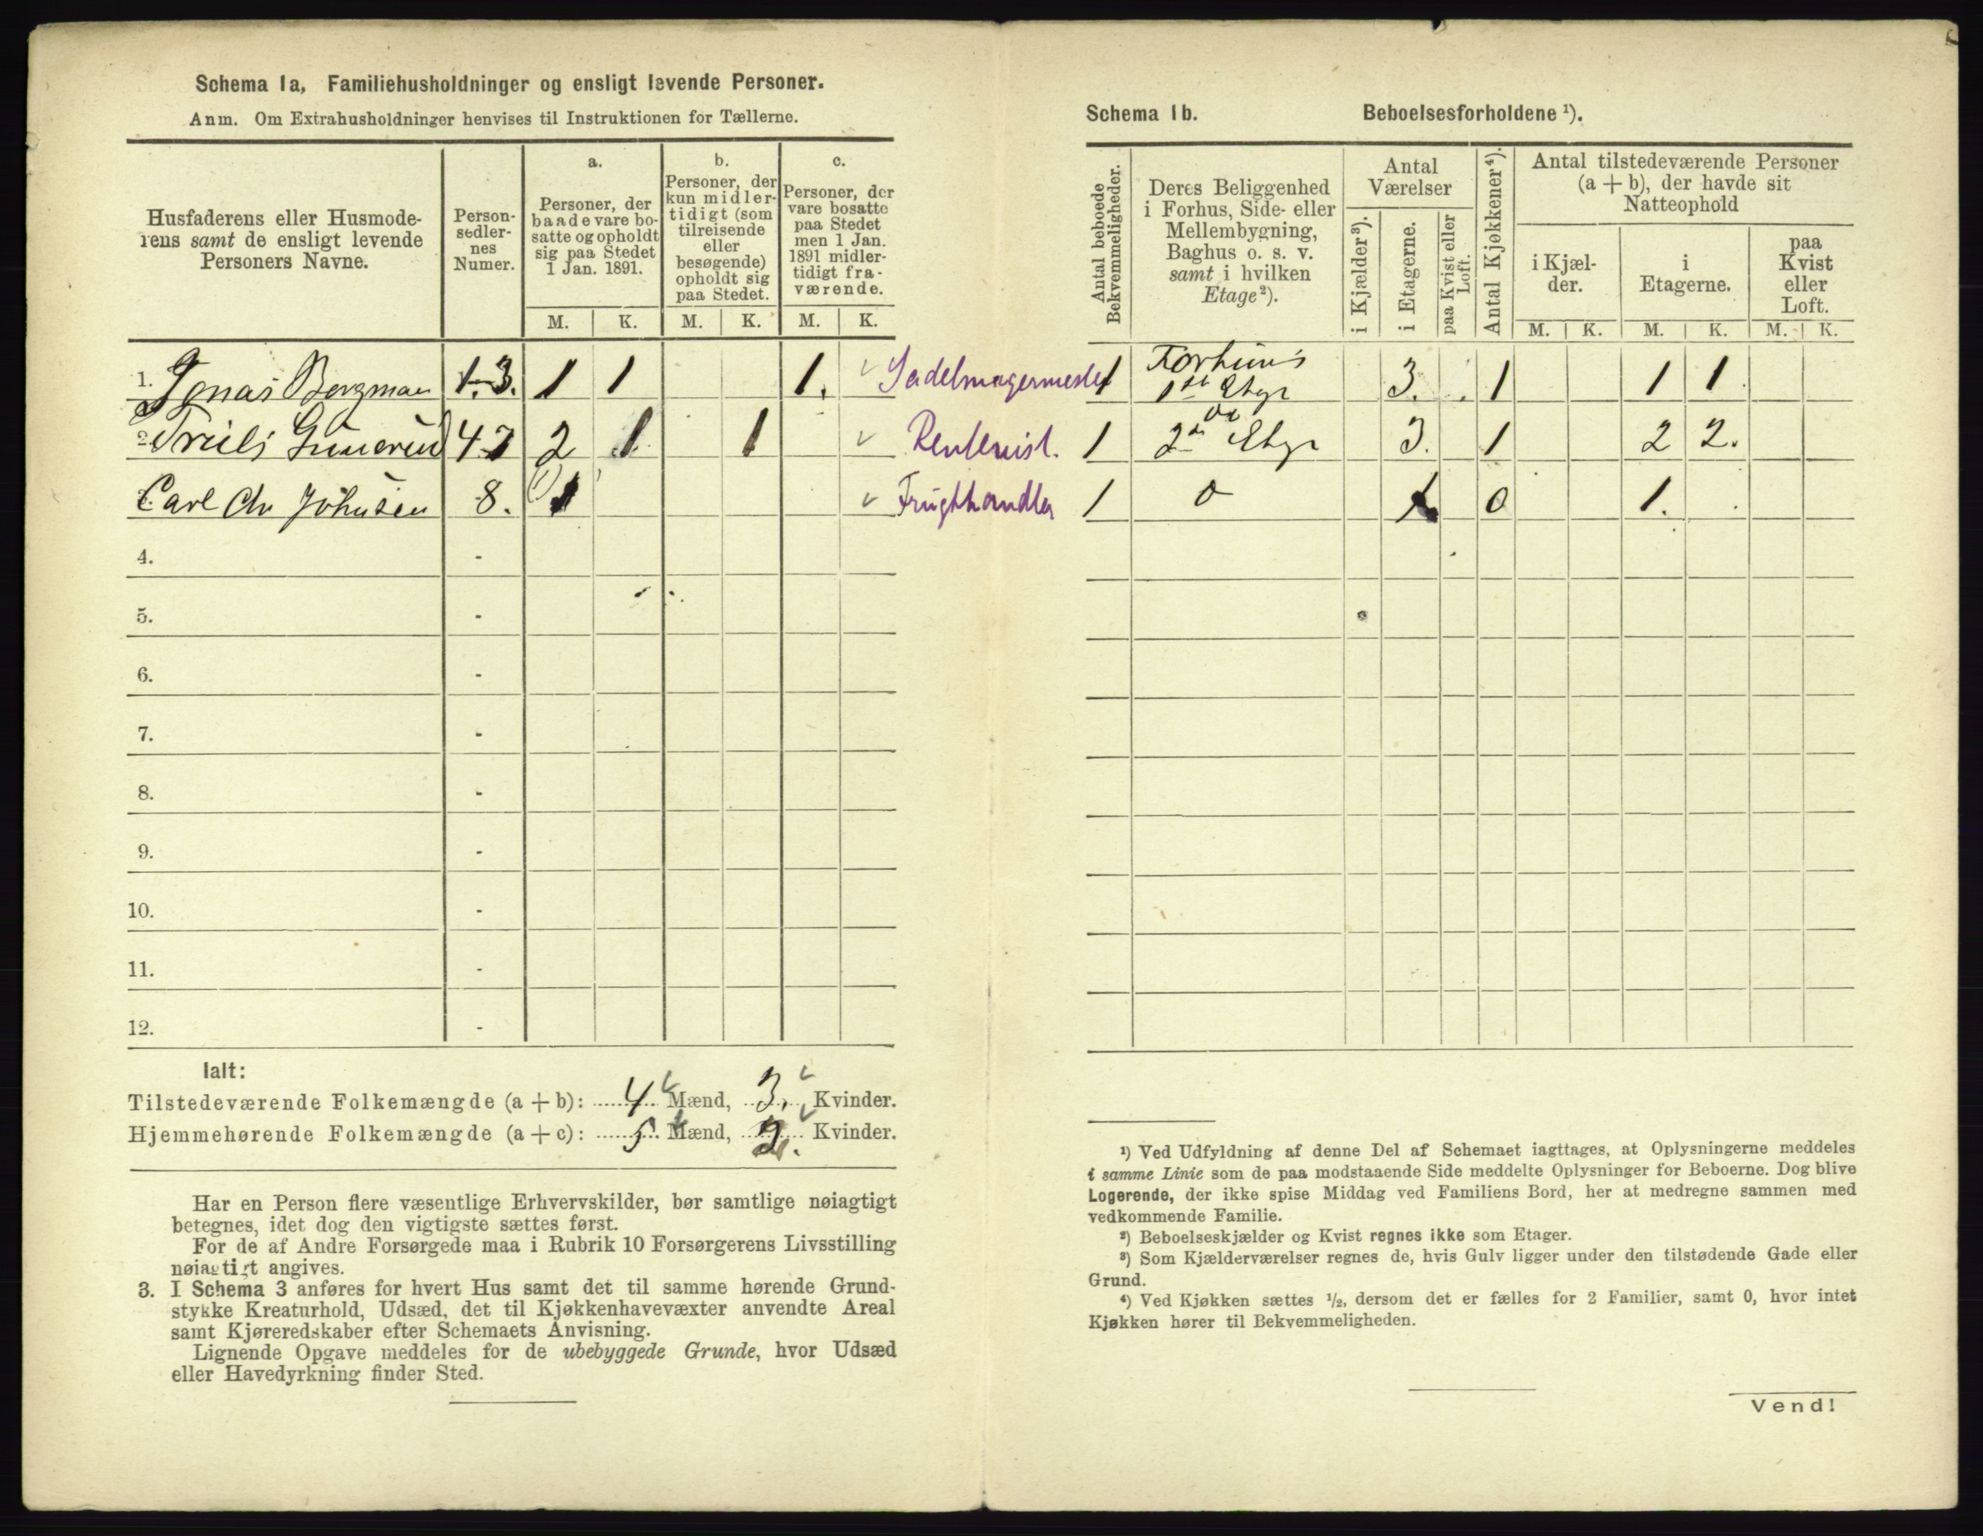 Schema 1a, Familiehusholdninger og ensligt levende Personer.
Anm. Om Extrahusholdninger henvises til Instruktionen for Tællerne.
Husfaderens eller Husmoderens samt de ensligt levende Personers Navne.
Personsedlernes Numer.
a.
Personer, der baade vare bosatte og opholdt sig paa Stedet 1 Jan. 1891.
b.
Personer, der kun midlertidigt (som tilreisende eller besøgende) opholdt sig paa Stedet.
c.
Personer, der vare bosatte paa Stedet men 1 Jan. 1891 midlertidigt fraværende.
M. K. M. K. M. K.
1. Jonas Bergman 1-3. 1 1 1. Sadelmagermester
2. Truls Gunerud 4-7 2 1 1 Rentenist.
Carl Chr Johnsen 8. 1 Frugthandler
4. -
5. -
6. -
7. -
8. -
9. -
10. -
11. -
12. -
Ialt:
Tilstedeværende Folkemængde (a + b): 4 Mænd, 3. Kvinder.
Hjemmehørende Folkemængde (a + c): 5 Mænd, 2. Kvinder.
Har en Person flere væsentlige Erhvervskilder, bør samtlige nøiagtigt
betegnes, idet dog den vigtigste sættes først.
For de af Andre Forsørgede maa i Rubrik 10 Forsørgerens Livsstilling
nøiagtigt angives.
3. I Schema 3 anføres for hvert Hus samt det til samme hørende Grund-
stykke Kreaturhold, Udsæd, det til Kjøkkenhavevæxter anvendte Areal
samt Kjøreredskaber efter Schemaets Anvisning.
Lignende Opgave meddeles for de ubebyggede Grunde, hvor Udsæd
eller Havedyrkning finder Sted.
Schema 1b. Beboelsesforholdene ¹).
Antal beboede Bekvemmeligheder.
Deres Beliggenhed i Forhus, Side- eller Mellembygning, Baghus o. s. v. samt i hvilken Etage²).
Antal Værelser
i Kjælder³).
i Etagerne.
paa Kvist eller Loft.
Antal Kjøkkener⁴).
Antal tilstedeværende Personer (a + b), der havde sit Natteophold
i Kjælder.
i Etagerne.
paa Kvist eller Loft.
M. K. M. K. M. K.
1 Forhuus 1ste Etage 3. 1 1 1
1 2den Etage 3. 1 2 2.
1 0 1 0 1.
¹) Ved Udfyldning af denne Del af Schemaet iagttages, at Oplysningerne meddeles
i samme Linie som de paa modstaaende Side meddelte Oplysninger for Beboerne. Dog blive
Logerende, der ikke spise Middag ved Familiens Bord, her at medregne sammen med
vedkommende Familie.
²) Beboelseskjælder og Kvist regnes ikke som Etager.
³) Som Kjælderværelser regnes de, hvis Gulv ligger under den tilstødende Gade eller
Grund.
⁴) Ved Kjøkken sættes ½, dersom det er fælles for 2 Familier, samt 0, hvor intet
Kjøkken hører til Bekvemmeligheden.
Vend!